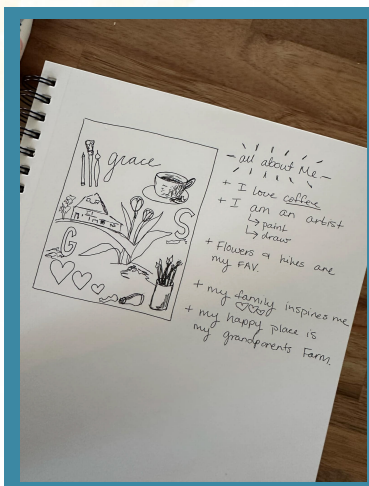 grace
S
G
- all about Me -
+ I love coffee
+ I am an artist
↳ paint
↳ draw
+ Flowers & hikes are
my FAV.
+ my family inspires me
+ my happy place is
my grandparents Farm.